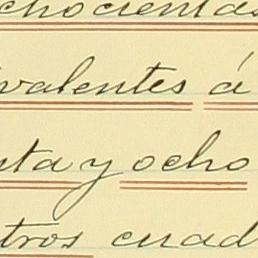 chocientas
valentes á
nta y ocho
tros cuad